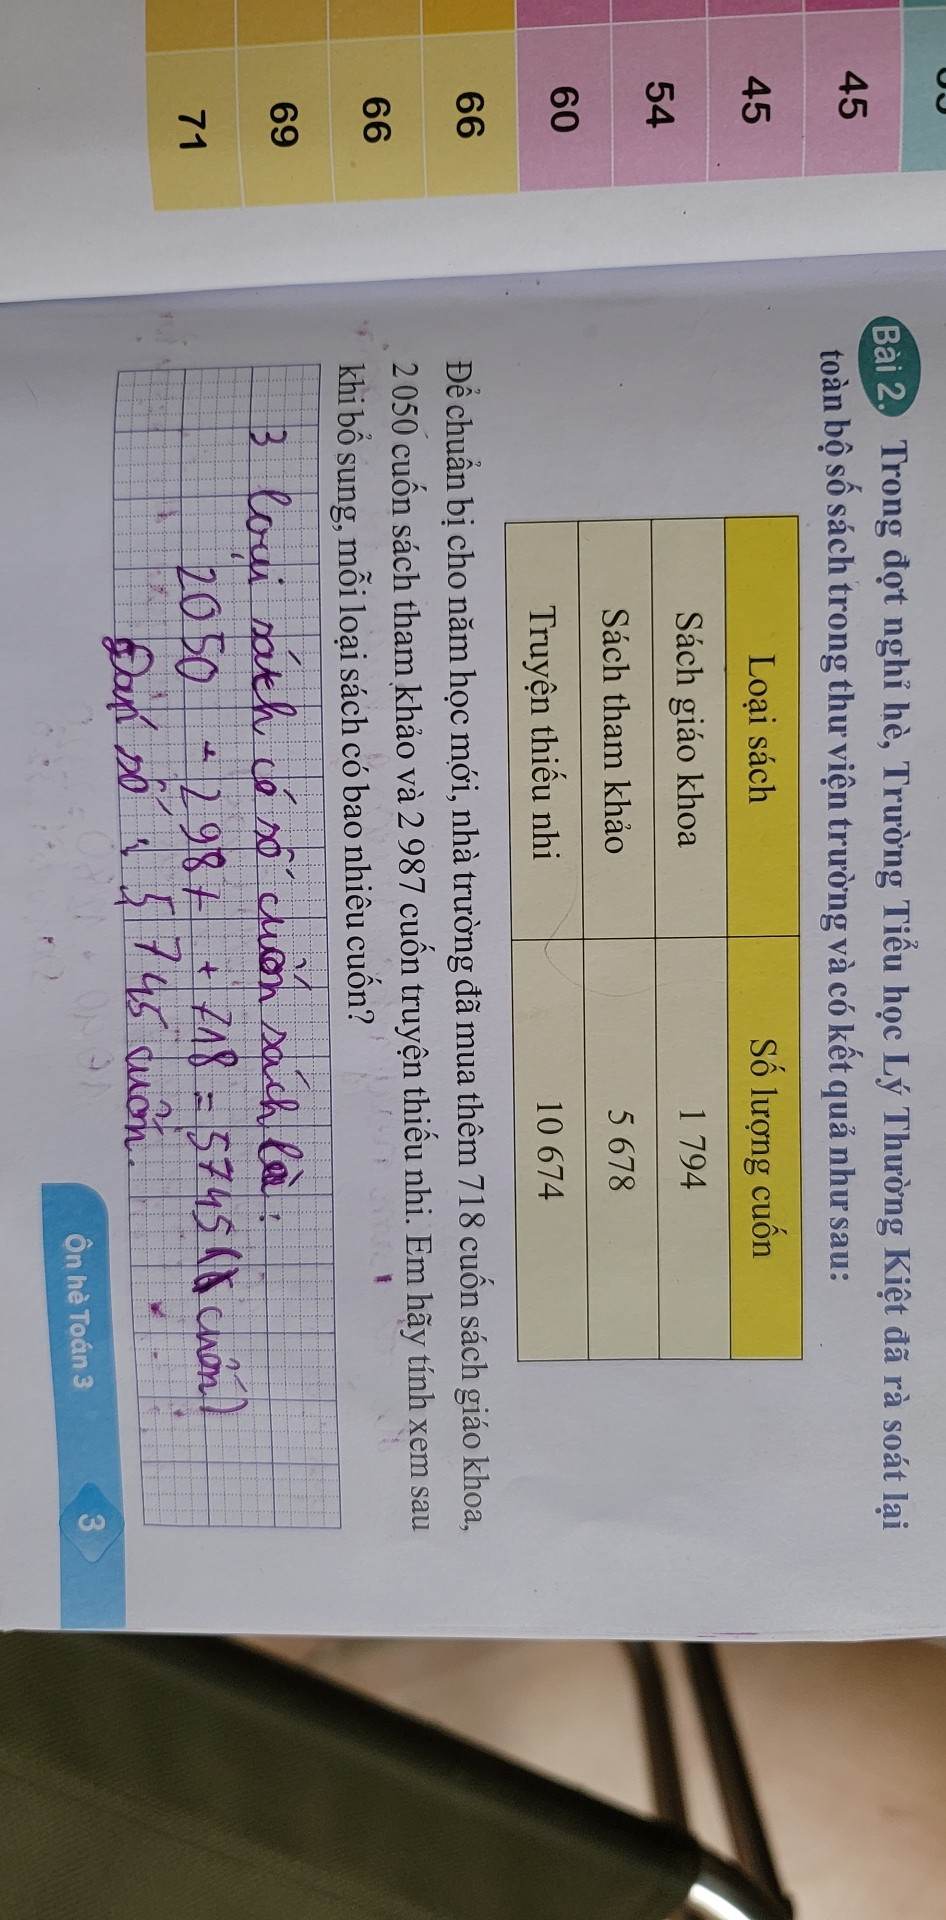 45
45
54
60
66
66
69
71
Bài 2. Trong đợt nghỉ hè, Trường Tiểu học Lý Thường Kiệt đã rà soát lại
toàn bộ số sách trong thư viện trường và có kết quả như sau:
Loại sách Số lượng cuốn
Sách giáo khoa 1 794
Sách tham khảo 5 678
Truyện thiếu nhi 10 674
Để chuẩn bị cho năm học mới, nhà trường đã mua thêm 718 cuốn sách giáo khoa,
2 050 cuốn sách tham khảo và 2 987 cuốn truyện thiếu nhi. Em hãy tính xem sau
khi bổ sung, mỗi loại sách có bao nhiêu cuốn?
3 loại sách có số cuốn sách là:
2050 + 2987 + 718 = 5745 ( cuốn)
Đáp số : 5745 cuốn.
Ôn hè Toán 3 3